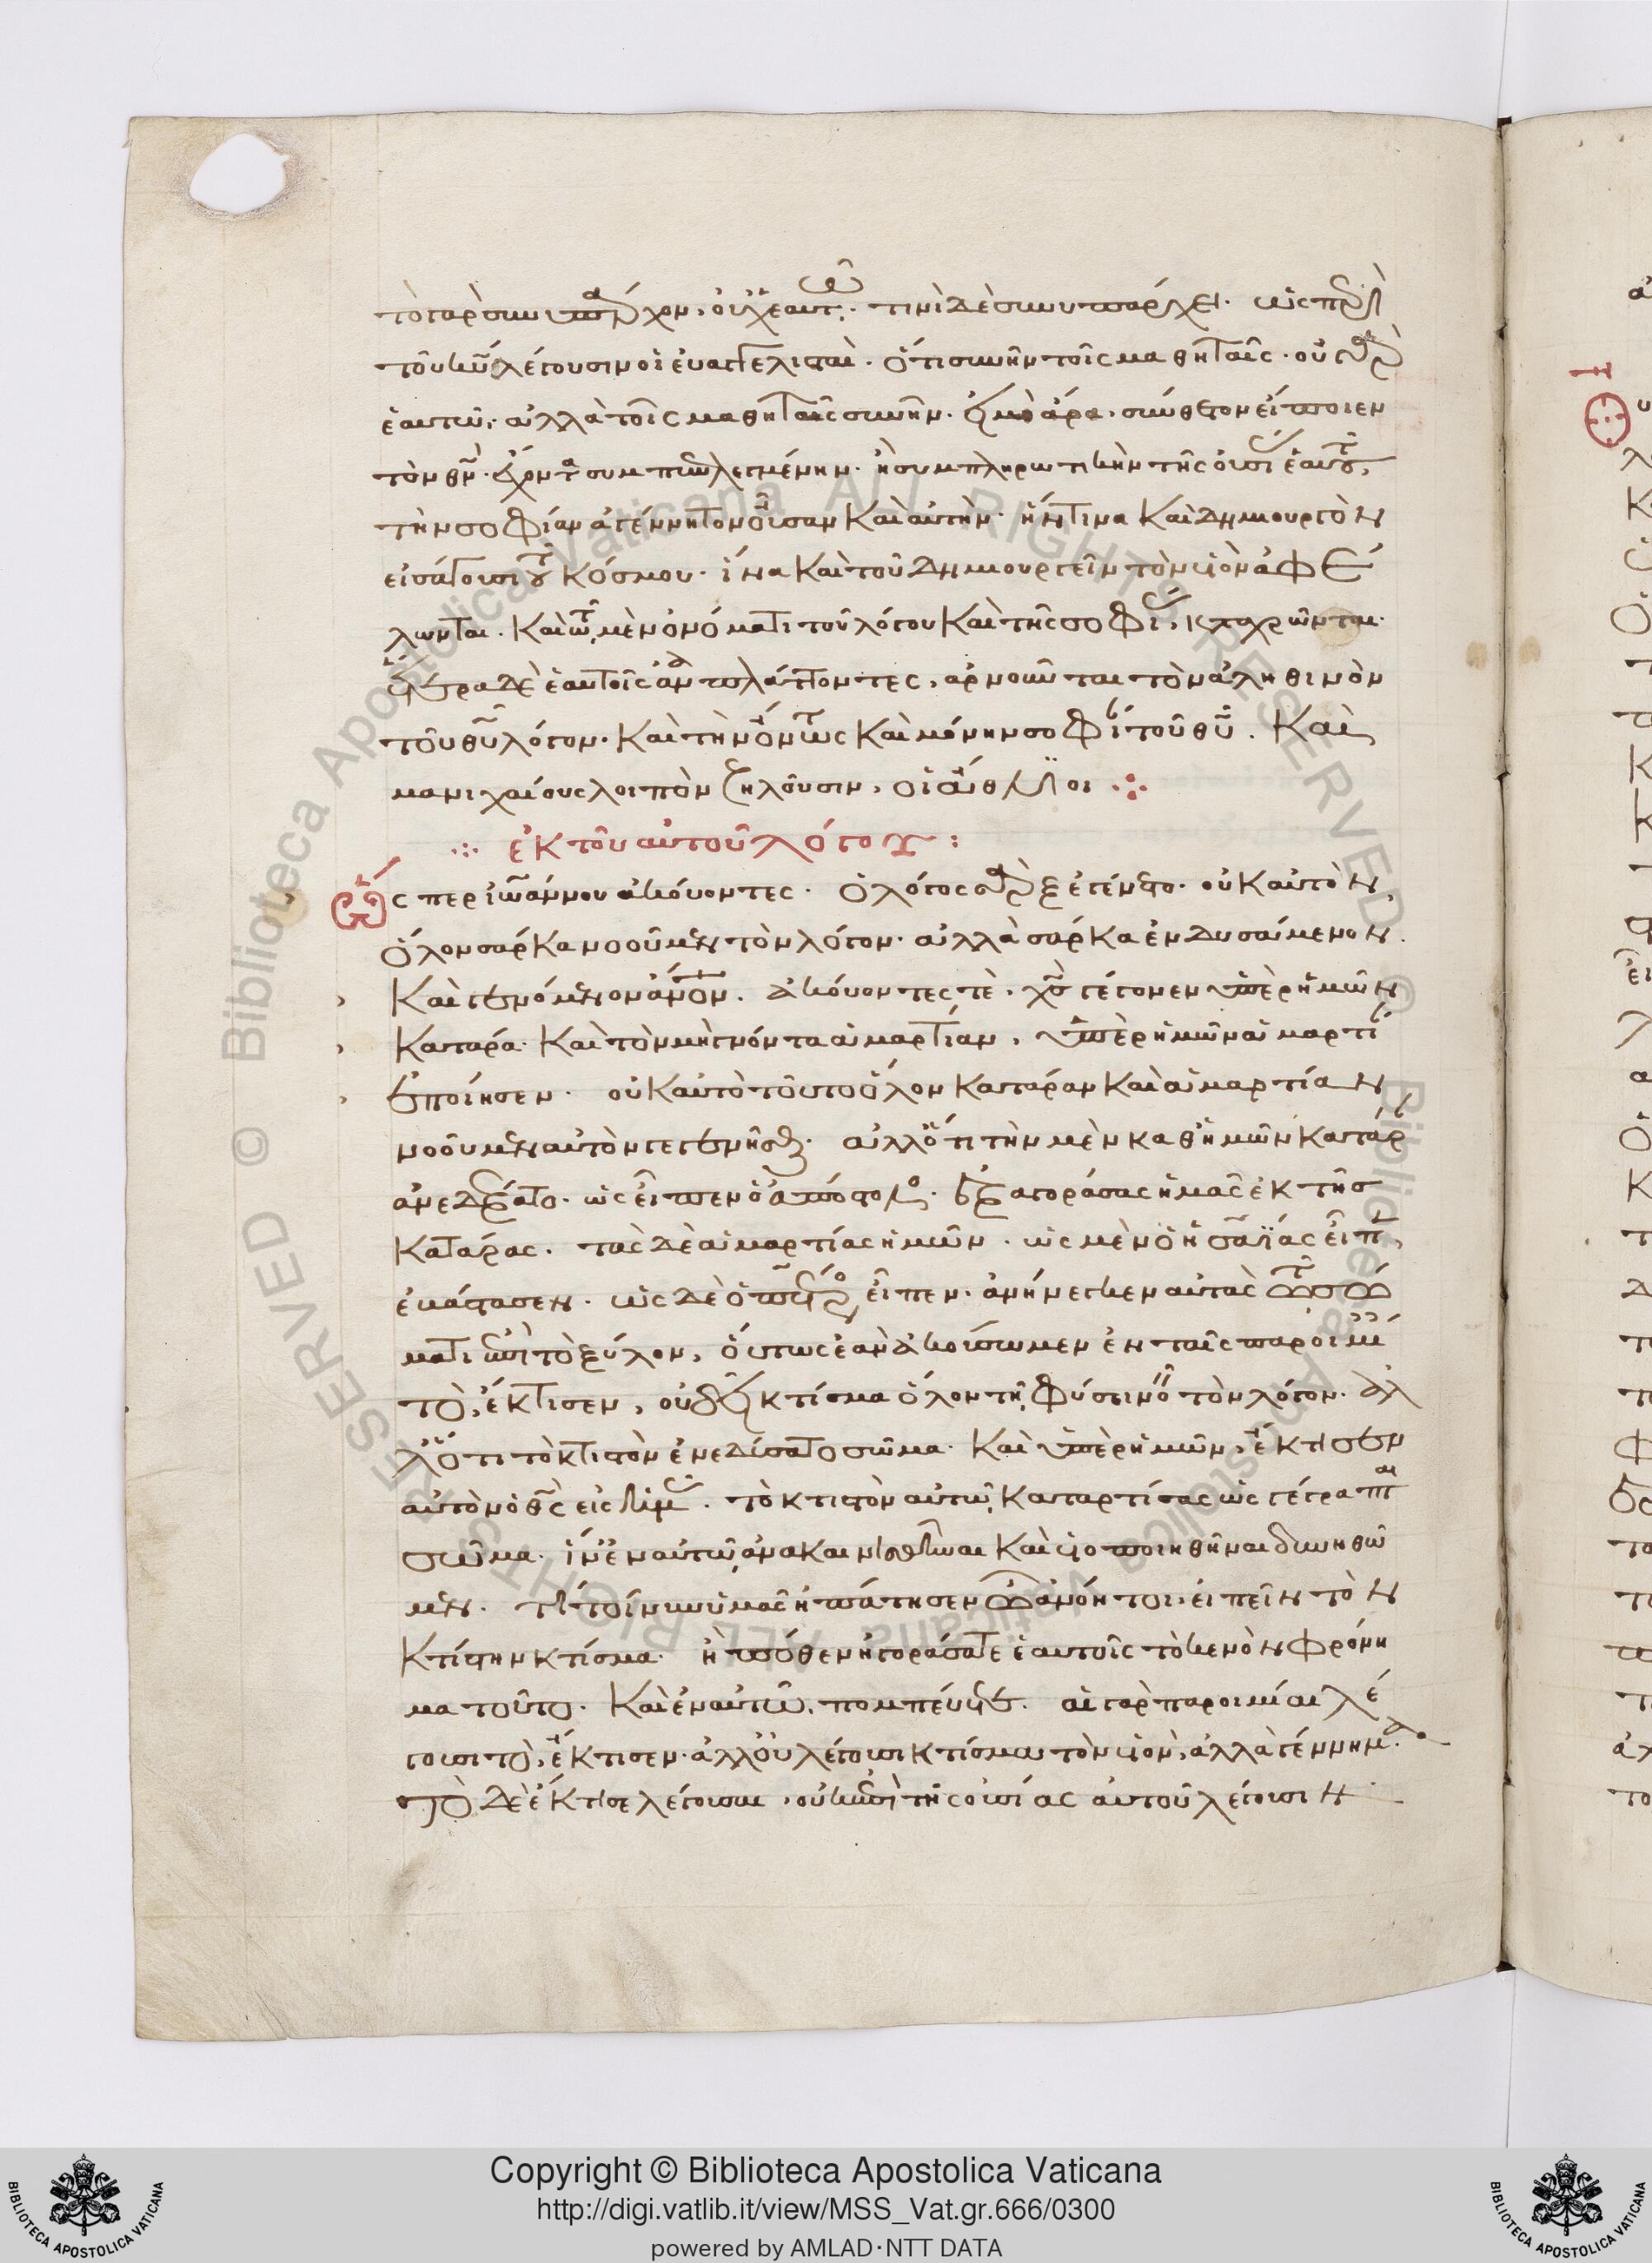 τὸ γὰρ συνυπάρχον, οὐχ ἑαυτῷ. τινὶ δὲ συνυπάρχει. ὡς περὶ
τοῦ κυ λέγουσιν οἱ εὐαγγελισταὶ. ὅτι συνῆν τοῖς μαθηταῖς. οὐ γὰρ
ἑαυτῷ. ἀλλὰ τοῖς μαθηταῖς συνῆν. ἄρα. σύνθετον εἴποιεν
τὸν θν. ἔχοντα συμπεπλεγμένην. ἢ συμπληρωτικὴν τῆς οὐσίας ἑαυτοῦ,
τὴν σοφίαν ἀγέννητον οὖσαν καὶ αὐτὴν. ἥντινα καὶ δημιουργὸν
εἰσάγουσι τοῦ κόσμου. ἵνα καὶ τοῦ δημιουργεῖν τὸν υἱὸν ἀφέ
λωνται.
τοῦ θυ λόγον. καὶ τὴν ὄντως καὶ μόνην σοφίαν τοῦ θυ. Καὶ
μανιχαίους λοιπὸν ζηλοῦσιν, οἱ ἄθλιοι
ἐκ τοῦ αὐτοῦ λόγου:
Ὥσπερ ἰωάννου ἀκούοντες. ὁ λόγος σὰρξ ἐγένετο. οὐκ αὐτὸν,
ὅλον σάρκα νοοῦμεν τὸν λόγον. ἀλλὰ σάρκα ἐνδυσάμενον.
καὶ γενόμενον ἄνον. ἀκούοντές τε. χς γέγονεν ὑπὲρ ἡμῶν
κατάρα. καὶ τὸν μὴ γνόντα ἁμαρτίαν, ὑπὲρ ἡμῶν ἁμαρτίαν
ἐποίησεν. οὐκ αὐτὸ τοῦτο ὅλον κατάραν καὶ ἁμαρτίαν
νοοῦμεν αὐτὸν γεγενῆσθαι. ἀλλ' ὅτι τὴν μὲν καθ' ἡμῶν κατάραν
ἀνεδέξατο. ὡς εἶπεν ὁ ἀπόστολος. ἐξαγοράσας ἡμᾶς ἐκ τῆς
κατάρας. τὰς δὲ ἁμαρτίας ἡμῶν. ὡς μὲν ὁ ἡσαΐας εἶπεν,
ἐβάστασεν. ὡς δὲ ὁ πέτρος εἶπεν. ἀνήνεγκεν αὐτὰς ἐν τῷ σώ
ματι ἐπὶ τὸ ξύλον, οὕτως ἐὰν ἀκούσωμεν ἐν ταῖς παροιμίαις
τὸ, ἔκτισεν, οὐ δεῖ κτίσμα ὅλον τῇ φύσει νοεῖν τὸν λόγον. ἀλ
λ' ὅτι τὸ κτιστὸν ἐνεδύσατο σῶμα. καὶ ὑπὲρ ἡμῶν, ἔκτισεν
αὐτὸν ὁ θς εἰς ἡμᾶς. τὸ κτιστὸν αὐτῷ, καταρτίσας ὡς γέγραπται
σῶμα. ἵν' ἐν αὐτῷ ἀνακαινισθῆναι καὶ υἱοποιηθῆναι δυνηθῶ
μεν. τί τοίνυν ὑμᾶς ἠπάτησεν ὦ ἀνόητοι, εἰπεῖν τὸν
κτίστην κτίσμα. ἢ πόθεν ἠγοράσατε ἑαυτοῖς τὸ κενὸν φρόνη
μα τοῦτο. καὶ ἐν αὐτῷ, πομπεύετε. αἱ γὰρ παροιμίαι λέ
γουσι τὸ, ἔκτισεν. ἀλλ' οὐ λέγουσι κτίσμα τὸν υἱὸν, ἀλλὰ γέννημα.
τὸ δὲ ἔκτισε λέγουσαι, οὐκ ἐπὶ τῆς οὐσίας αὐτοῦ λέγουσιν
Copyright © Biblioteca Apostolica Vaticana
http://digi.vatlib.it/view/MSS_Vat.gr.666/0300
powered by AMLAD·NTT DATA
BIBLIOTECA APOSTOLICA VATICANA
BIBLIOTECA APOSTOLICA VATICANA